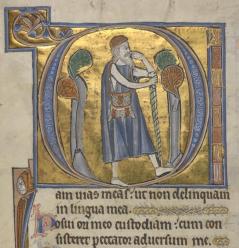 am uias meas: ut non delinquam
in lingua mea.
Posui ori meo custodiam: cum con
sisteret peccator aduersum me.